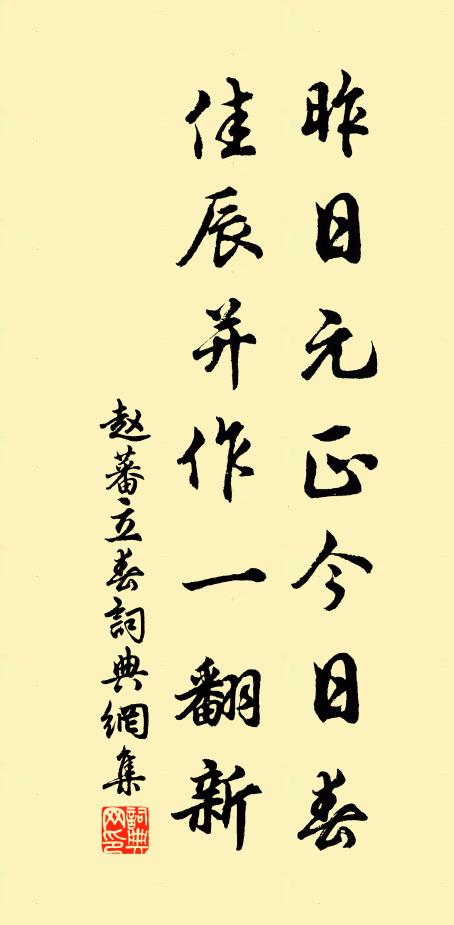 昨日元正今日春
佳辰并作一翻新
赵蕃立春詞典網集
詞典网印